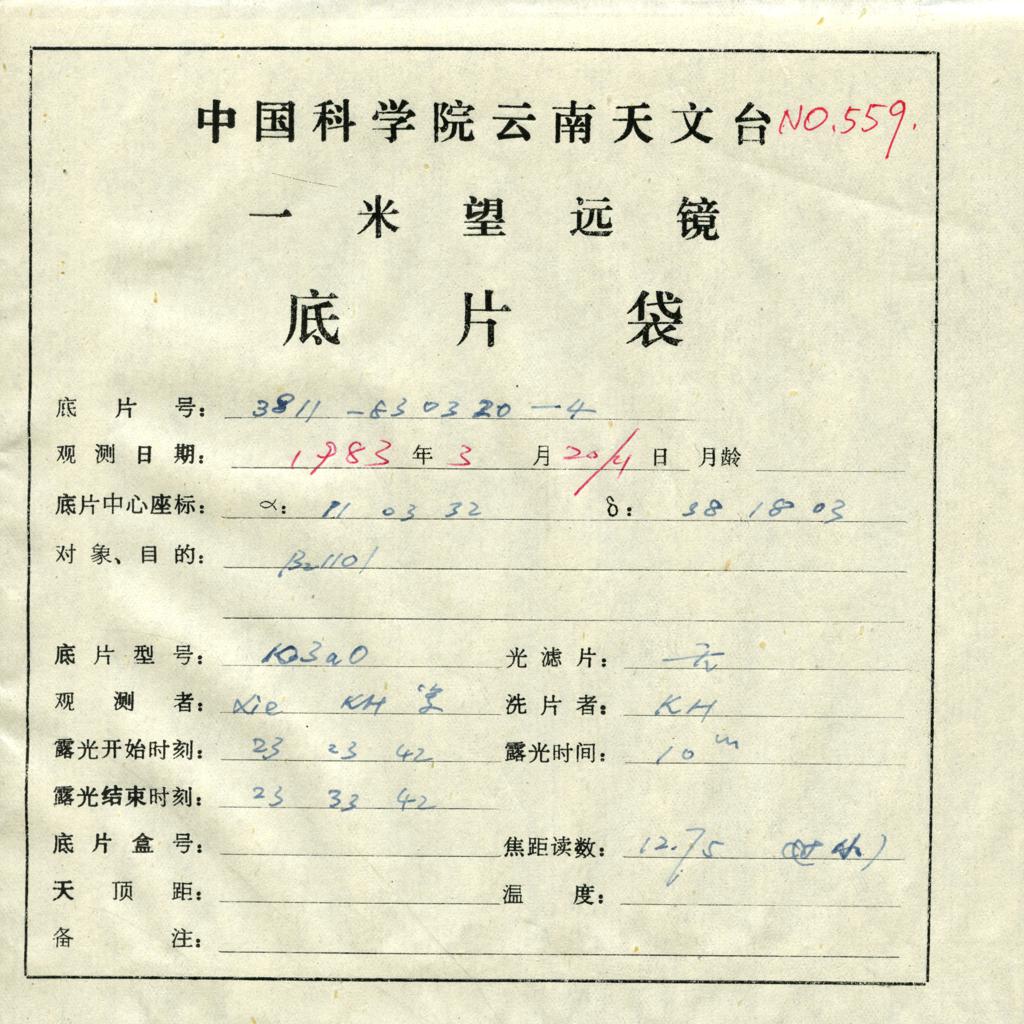 中国科学院云南天文台 NO.559.
一米望远镜
底片袋
底片号: 3811-830320-4
观测日期: 1983年3月20/4日 月龄
底片中心座标: α: 11 03 32 δ: 38 18 03
对象、目的: B2 1101
底片型号: 103aO 光滤片: 无
观测者: Xie KH 洗片者: KH
露光开始时刻: 23 23 42 露光时间: 10m
露光结束时刻: 23 33 42
底片盒号: 焦距读数: 12.75
天顶距: 温度:
备注: